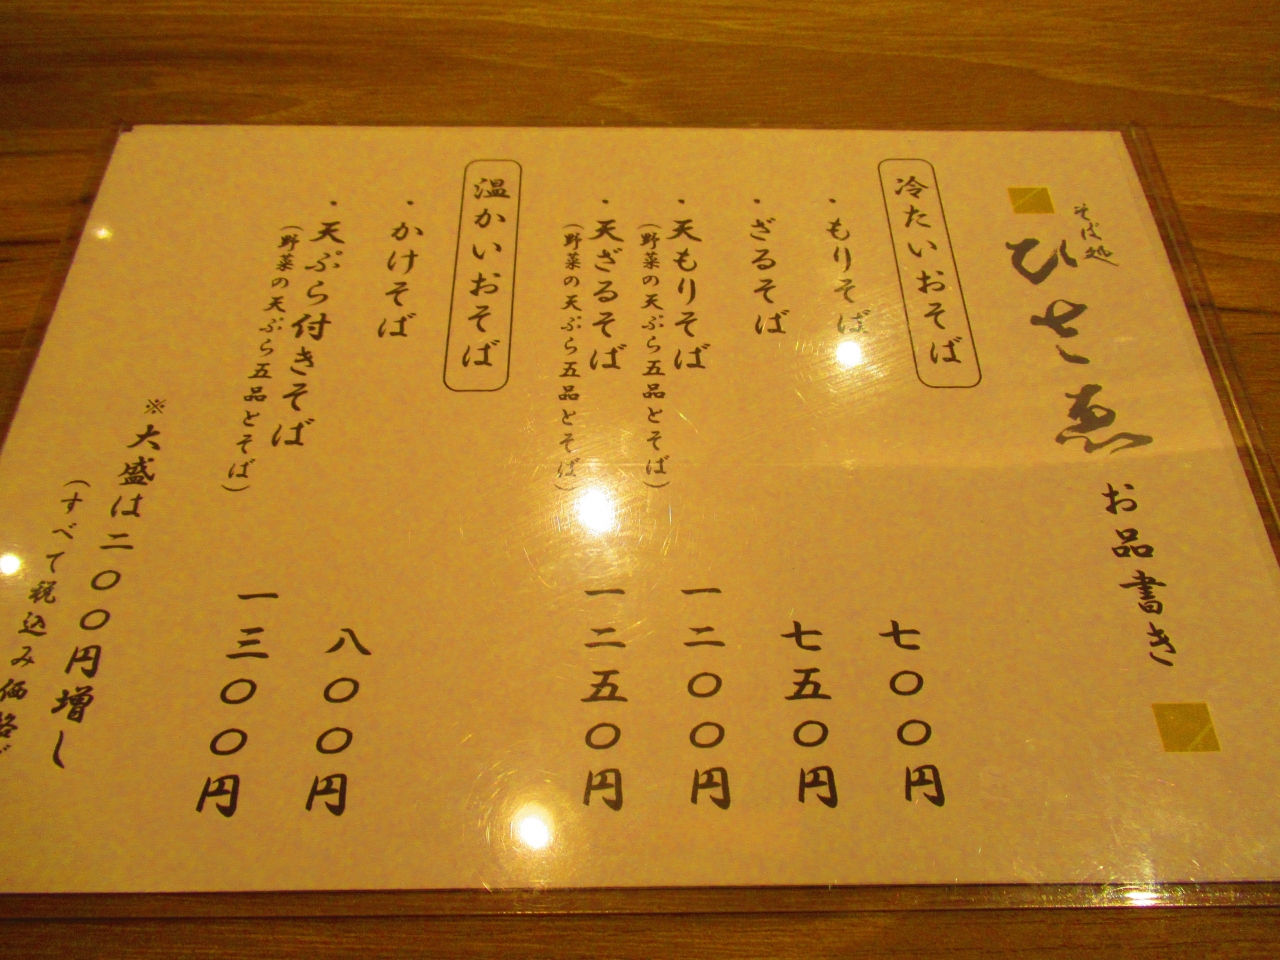 そば処
ひさゑ
お品書き
冷たいおそば
・もりそば 七〇〇円
・ざるそば 七五〇円
・天もりそば 一二〇〇円
(野菜の天ぷら五品とそば)
・天ざるそば 一二五〇円
(野菜の天ぷら五品とそば)
温かいおそば
・かけそば 八〇〇円
・天ぷら付きそば 一三〇〇円
(野菜の天ぷら五品とそば)
※大盛は二〇〇円増し
(すべて税込み価格